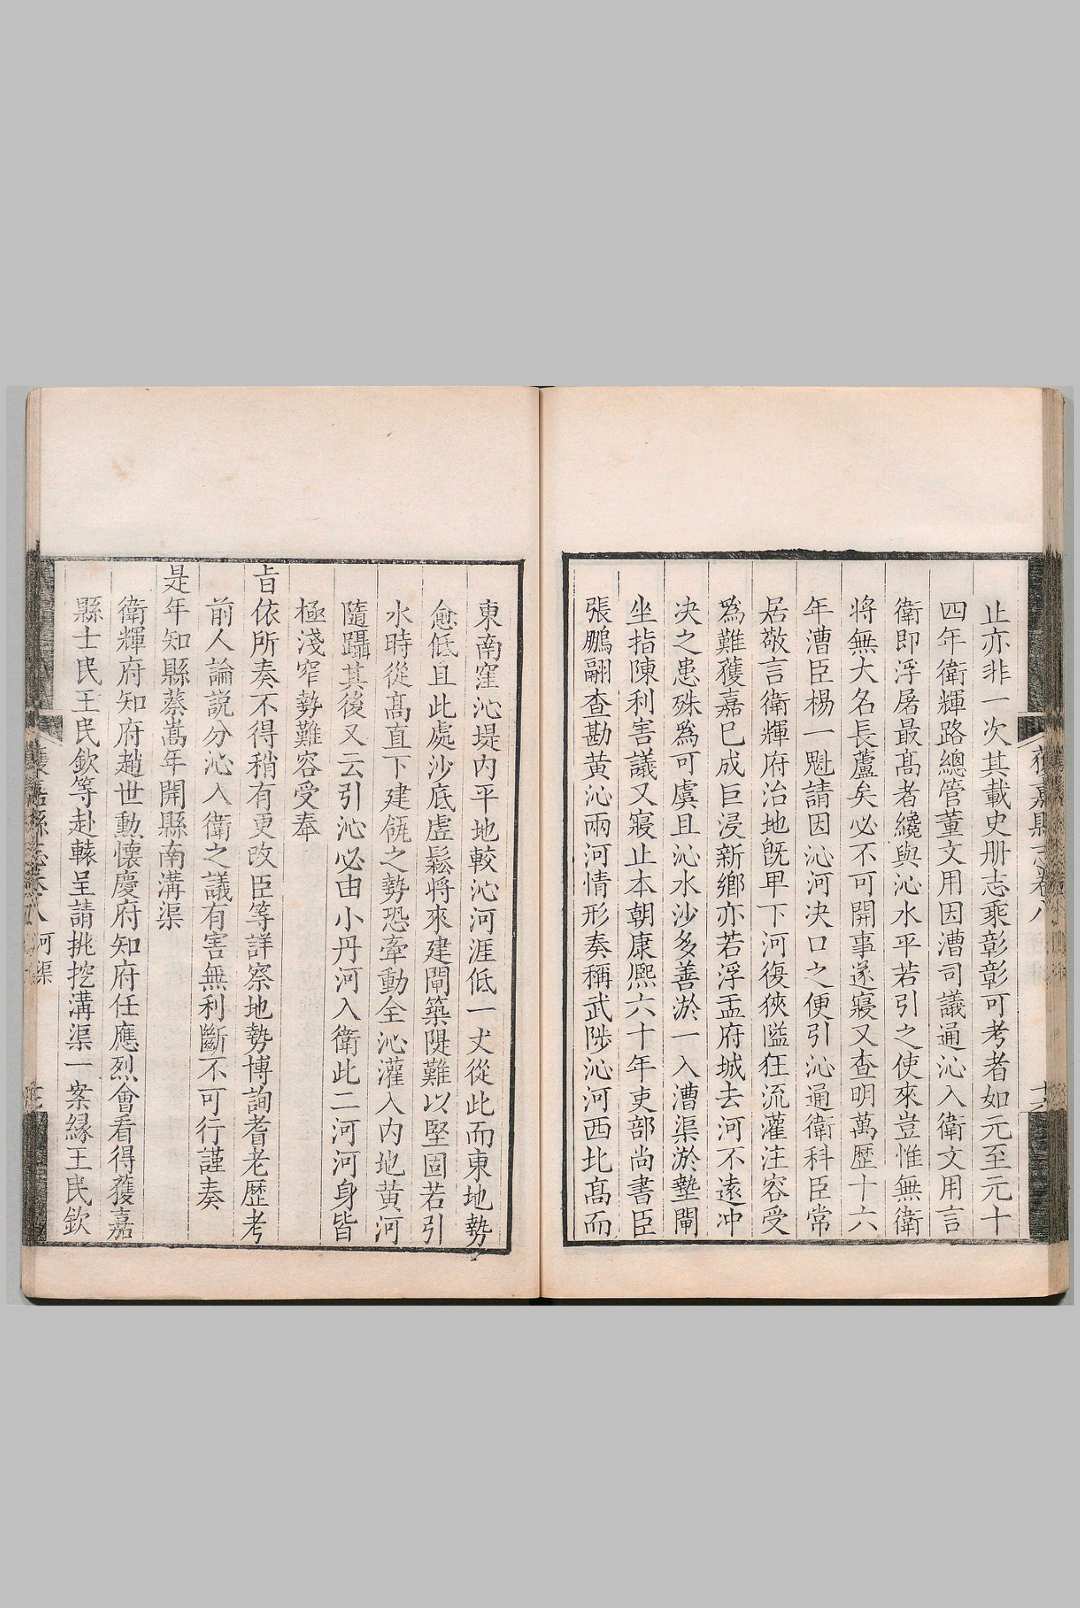 獲嘉縣志卷八
十六
止亦非一次其載史册志乘彰彰可考者如元至元十
四年衛輝路總管董文用因漕司議通沁入衛文用言
衛即浮屠最高者纔與沁水平若引之使來豈惟無衛
將無大名長蘆矣必不可開事遂寢又查明萬歷十六
年漕臣楊一魁請因沁河决口之便引沁通衛科臣常
居敬言衛輝府治地旣卑下河復狹隘狂流灌注容受
爲難獲嘉已成巨浸新鄉亦若浮盂府城去河不遠冲
决之患殊爲可虞且沁水沙多善淤一入漕渠淤墊閘
坐指陳利害議又寢止本朝康熙六十年吏部尚書臣
張鵬翮查勘黄沁兩河情形奏稱武陟沁河西北高而
東南窪沁堤内平地較沁河涯低一丈從此而東地勢
愈低且此處沙底虚鬆將來建閘築隄難以堅固若引
水時從高直下建瓴之勢恐牽動全沁灌入内地黄河
隨躡其後又云引沁必由小丹河入衛此二河河身皆
極淺窄勢難容受奉
旨依所奏不得稍有更改臣等詳察地勢博詢耆老歷考
前人論說分沁入衛之議有害無利斷不可行謹奏
是年知縣蔡嵩年開縣南溝渠
衛輝府知府趙世勳懷慶府知府任應烈會看得獲嘉
縣士民王民欽等赴轅呈請挑挖溝渠一案緣王民欽
河渠